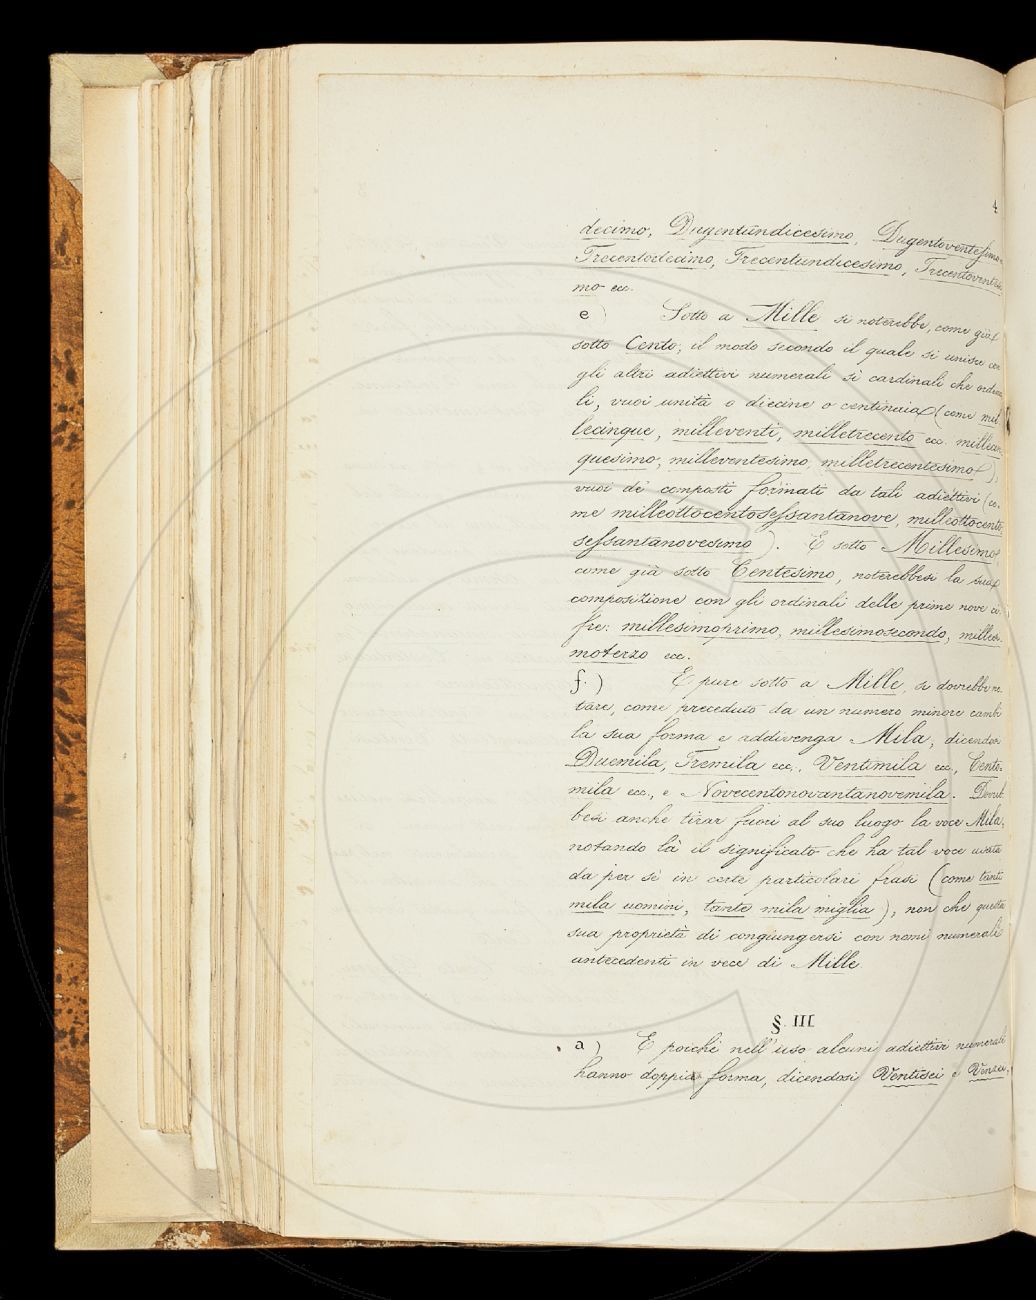 4
decimo, Dugentundicesimo, Dugentoventesimo,
Trecentodecimo, Trecentundicesimo, Trecentoventesi
mo ecc.
e) Sotto a Mille si noterebbe, come già
sotto Cento, il modo secondo il quale si unisce con
gli altri adiettivi numerali sì cardinali che ordina
li, vuoi unità o diecine o centinaia (come mil
lecinque, milleventi, milletrecento ecc. millecin
quesimo, milleventesimo, milletrecentesimo),
vuoi de' composti formati da tali adiettivi (co-
me milleottocentosessantanove, milleottocento
sessantanovesimo). E sotto Millesimo,
come già sotto Centesimo, noterebbesi la sua
composizione con gli ordinali delle prime nove ci-
fre: millesimoprimo, millesimosecondo, millesi-
moterzo ecc.
f.) E pure sotto a Mille, si dovrebbe no
tare, come preceduto da un numero minore cambi
la sua forma e addivenga Mila, dicendosi
Duemila, Tremila ecc., Ventimila ecc., Cento-
mila ecc., e Novecentonovantanovemila. Dovreb
besi anche tirar fuori al suo luogo la voce Mila,
notando là il significato che ha tal voce usata
da per sè in certe particolari frasi (come tanti
mila uomini, tante mila miglia), non che questa
sua proprietà di congiungersi con nomi numerali
antecedenti in vece di Mille.
§. III
a) E poichè nell'uso alcuni adiettivi numerali
hanno doppia forma, dicendosi Ventisei e